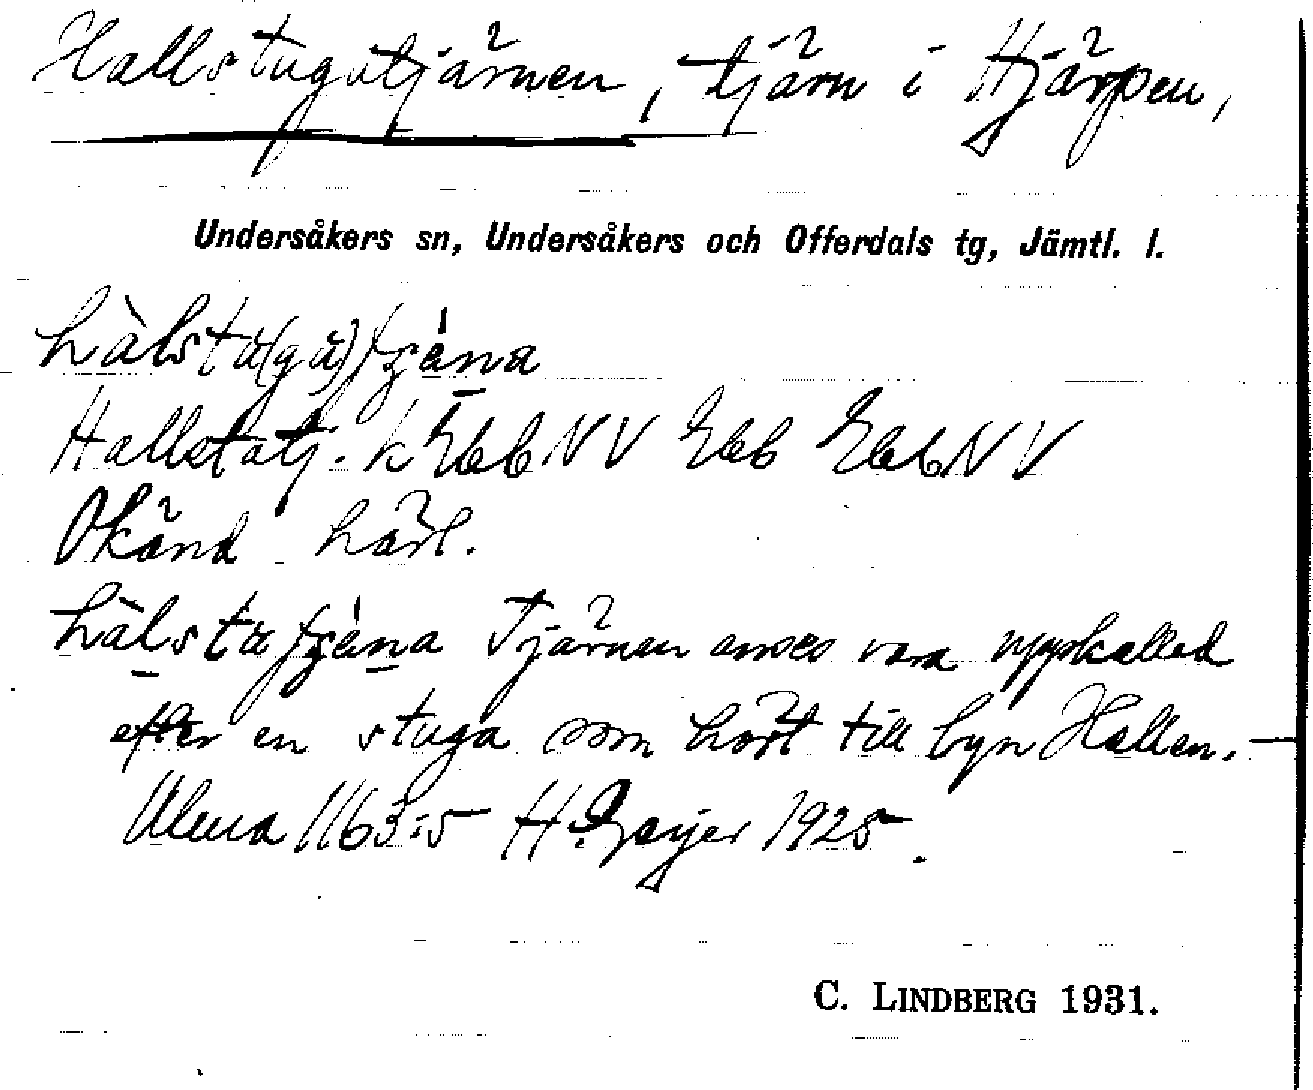 Hallstugutjärnen, tjärn i Hjärpen,
Undersåkers sn, Undersåkers och Offerdals tg, Jämtl. l.
Hallstutj. k Ebb NV Ebb Ebb NV
Okänd härl.
Tjärnen anses vara uppkallad
efter en stuga som hört till byn Hallen. —
Ulma 1163:5 H. Geijer 1925.
C. LINDBERG 1931.